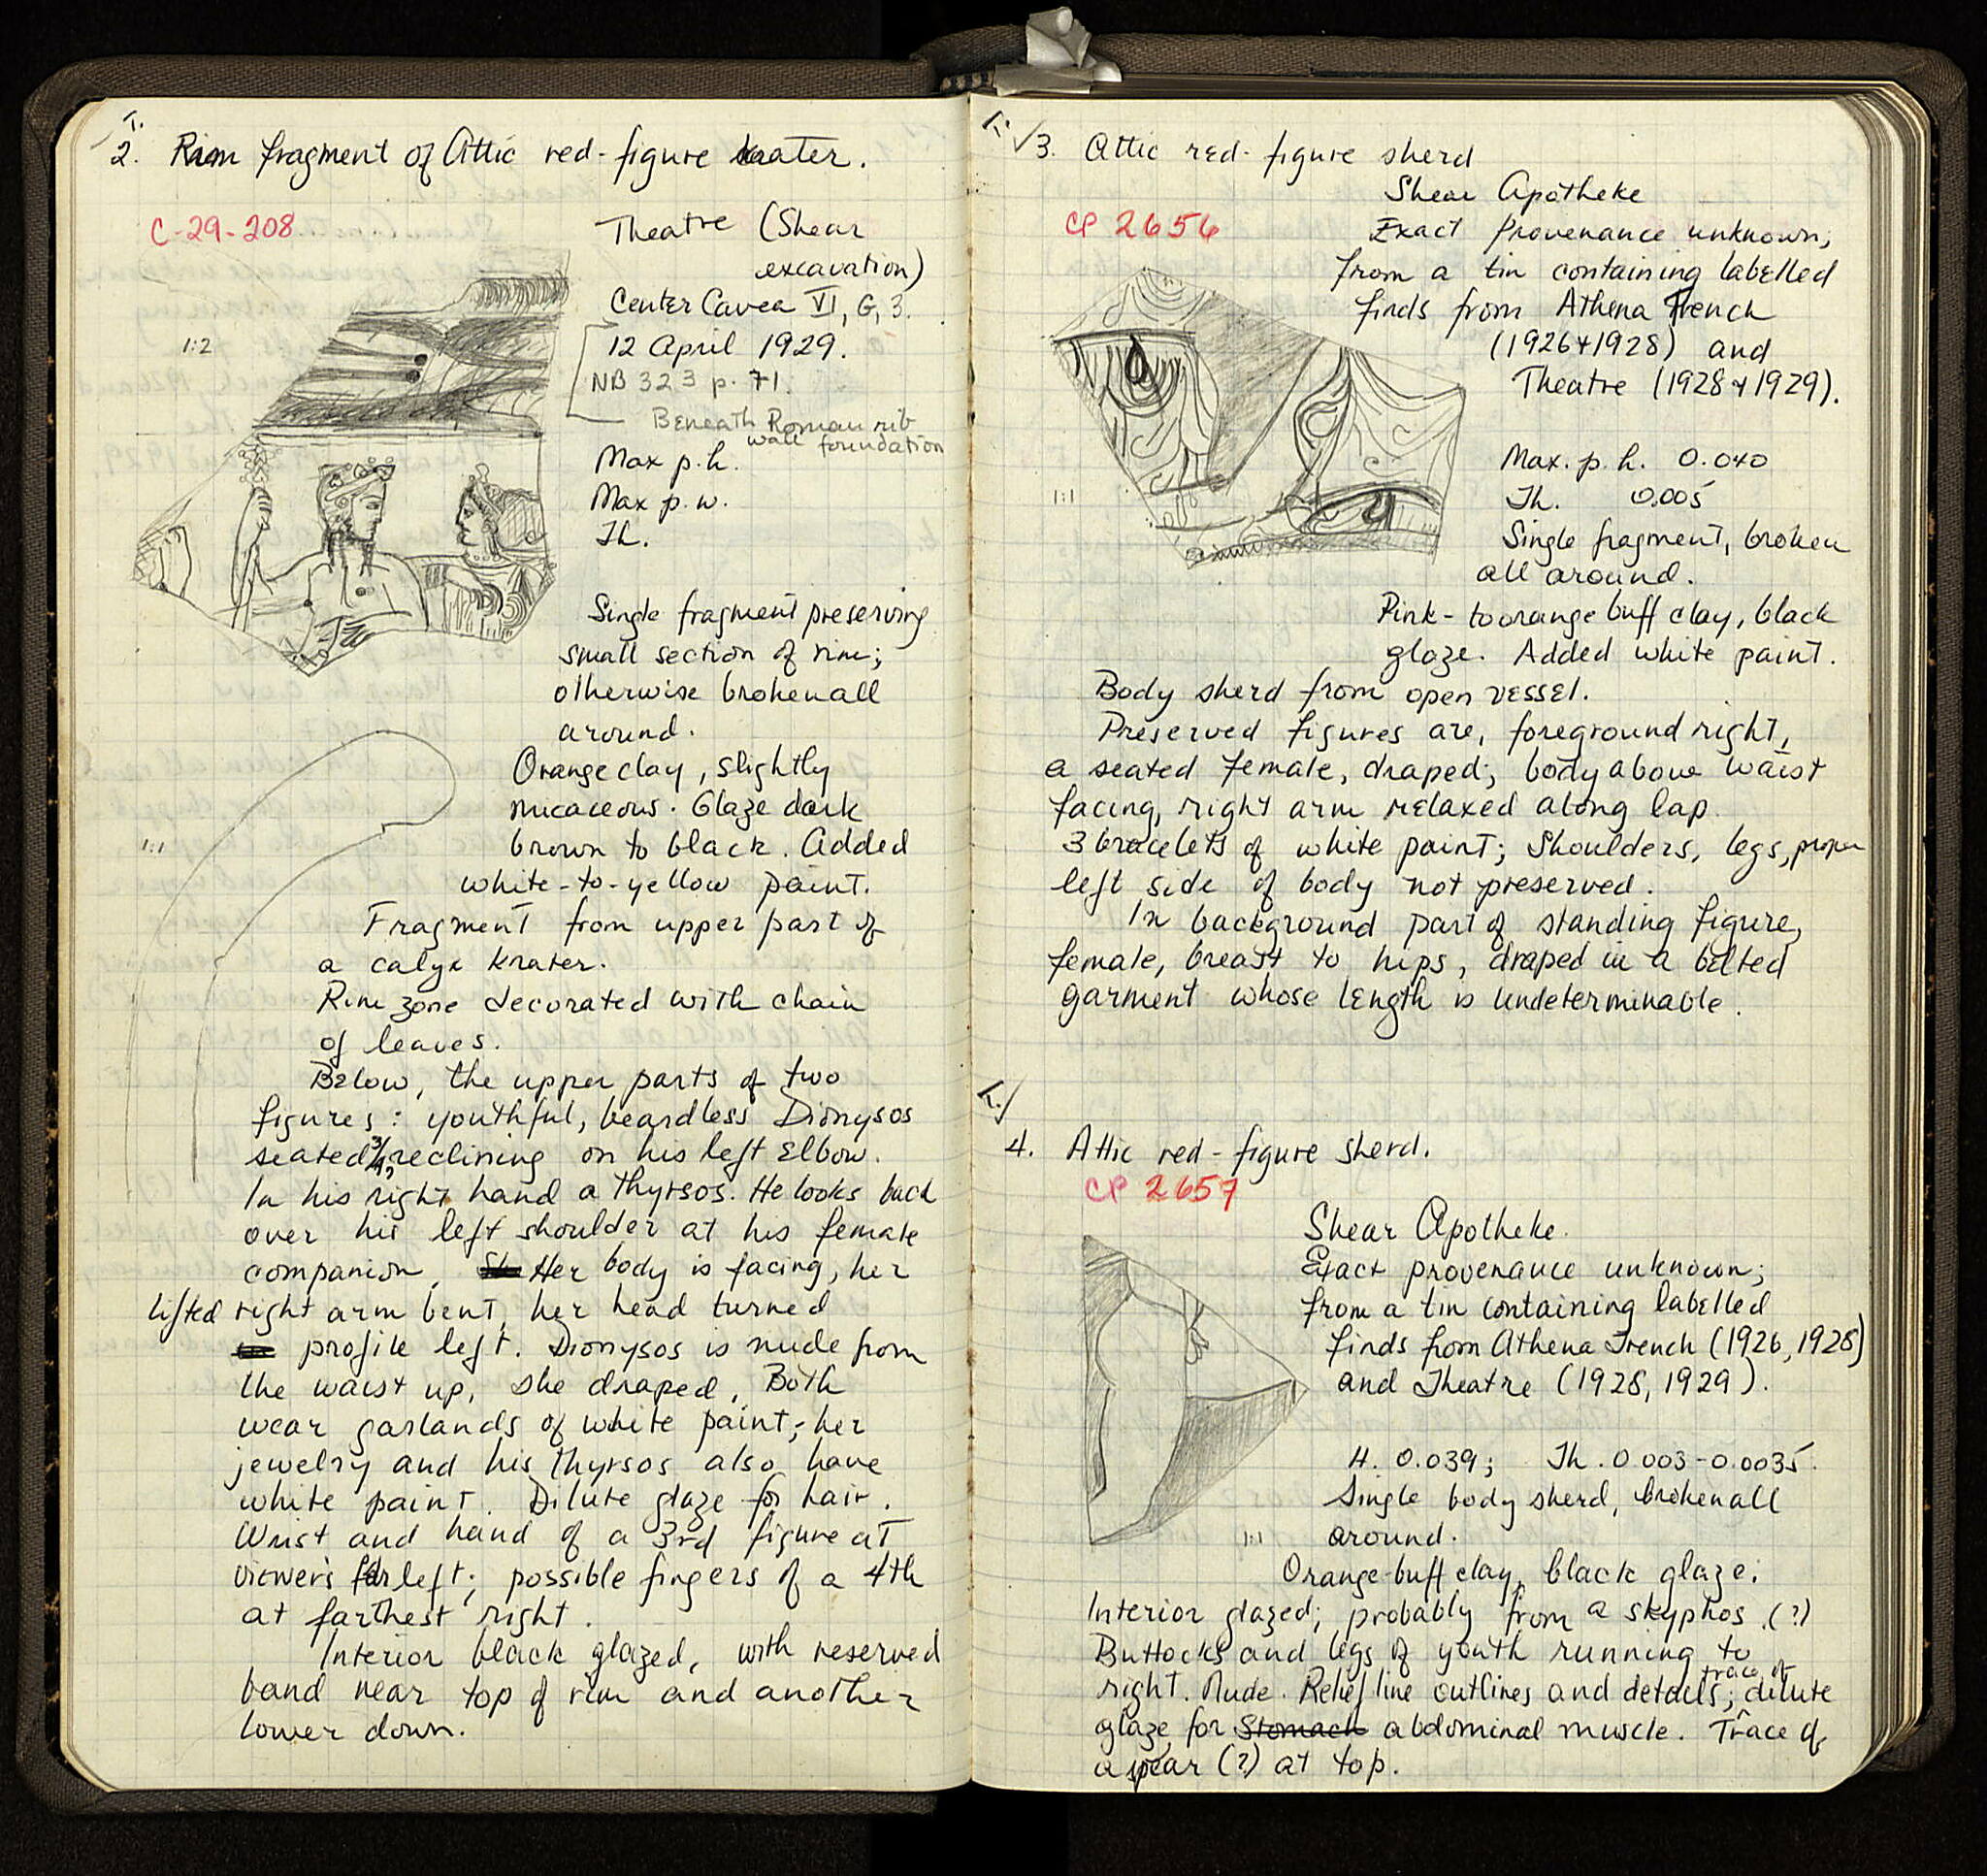 T.
2. Rim fragment of Attic red-figure krater.
C-29-208
Theatre (Shear
excavation)
Center Cavea VI, G, 3.
1:2
12 April 1929.
NB 323 p. 71.
Beneath Roman rib
wall foundation
Max p. h.
Max p. w.
Th.
Single fragment preserving
small section of rim;
otherwise broken all
around.
Orange clay, slightly
micaceous. Glaze dark
1:1
brown to black. Added
white-to-yellow paint.
Fragment from upper part of
a calyx krater.
Rim zone decorated with chain
of leaves.
Below, the upper parts of two
figures: youthful, beardless Dionysos
seated 3/4, reclining on his left elbow.
In his right hand a thyrsos. He looks back
over his left shoulder at his female
companion. Her body is facing, her
lifted right arm bent, her head turned
profile left. Dionysos is nude from
the waist up, she draped. Both
wear garlands of white paint; her
jewelry and his thyrsos also have
white paint. Dilute glaze for hair.
Wrist and hand of a 3rd figure at
viewer's far left; possible fingers of a 4th
at farthest right.
Interior black glazed, with reserved
band near top of rim and another
lower down.
T.
√3. Attic red-figure sherd
Shear Apotheke
CP 2656
Exact provenance unknown;
from a tin containing labelled
finds from Athena Trench
(1926+1928) and
Theatre (1928+1929).
Max. p. h. 0.040
1:1
Th. 0.005
Single fragment, broken
all around.
Pink-to orange buff clay, black
glaze. Added white paint.
Body sherd from open vessel.
Preserved figures are, foreground right,
a seated female, draped; body above waist
facing, right arm relaxed along lap.
3 bracelets of white paint; shoulders, legs, proper
left side of body not preserved.
In background part of standing figure,
female, breast to hips, draped in a belted
garment whose length is undeterminable.
T. √
4. Attic red-figure sherd.
CP 2657
Shear Apotheke.
Exact provenance unknown;
from a tin containing labelled
finds from Athena Trench (1926, 1928)
and Theatre (1928, 1929).
H. 0.039; Th. 0.003-0.0035.
Single body sherd, broken all
1:1
around.
Orange-buff clay, black glaze.
Interior glazed; probably from a skyphos (?)
Buttocks and legs of youth running to
right. Nude. Relief line outlines and details; trace of dilute
glaze for Stomach abdominal muscle. Trace of
a spear (?) at top.